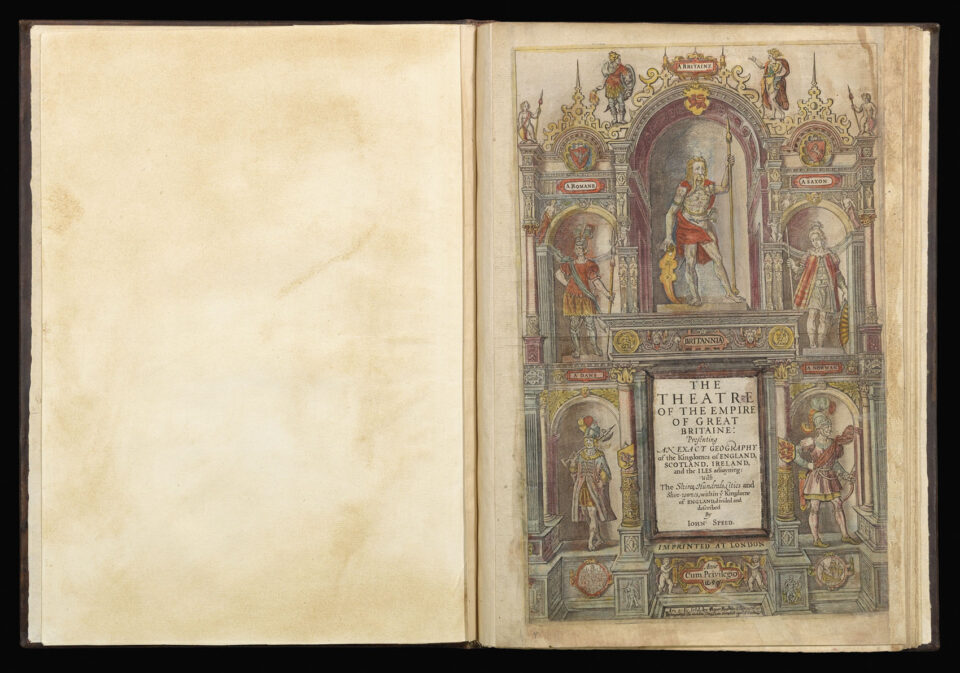 A BRITAINE
A ROMANE
A SAXON
BRITANNIA
A DANE
A NORMAN
THE
THEATRE
OF THE EMPIRE
OF GREAT
BRITAINE:
Presenting
AN EXACT GEOGRAPHY
of the Kingdomes of ENGLAND,
SCOTLAND, IRELAND,
and the ILES adioyning:
With
The Shires, Hundreds, Cities and
Shire-townes, within yͤ Kingdome
of ENGLAND, divided and
described
By
IOHN SPEED.
IMPRINTED AT LONDON
Anno
Cum Privilegio